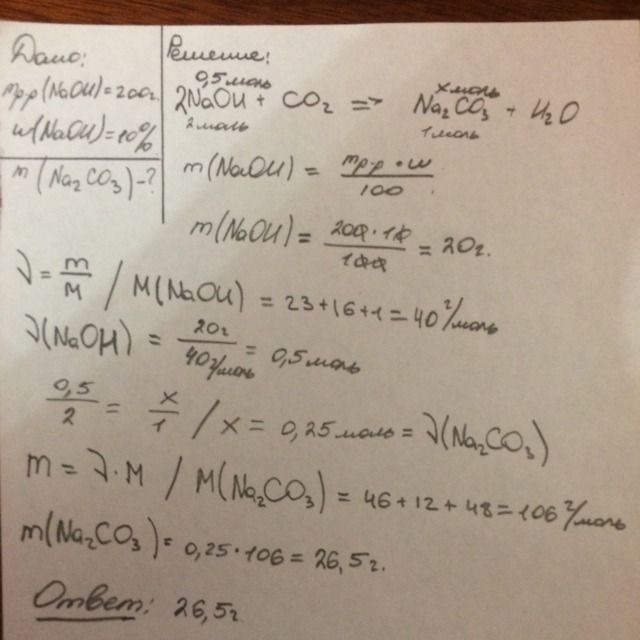 Дано:
mр.р(NaOH)=200г.
w(NaOH)=10%
m(Na₂CO₃)-?
Решение:
0,5моль xмоль
2NaOH + CO₂ => Na₂CO₃ + H₂O
2моль 1моль
m(NaOH) = mр.р • w / 100
m(NaOH) = 200·10 / 100 = 20г.
ν = m/M / M(NaOH) = 23+16+1 = 40 г/моль
ν(NaOH) = 20г / 40г/моль = 0,5моль
0,5/2 = x/1 / x = 0,25моль = ν(Na₂CO₃)
m = ν·M / M(Na₂CO₃) = 46+12+48=106 г/моль
m(Na₂CO₃)= 0,25·106 = 26,5г.
Ответ: 26,5г